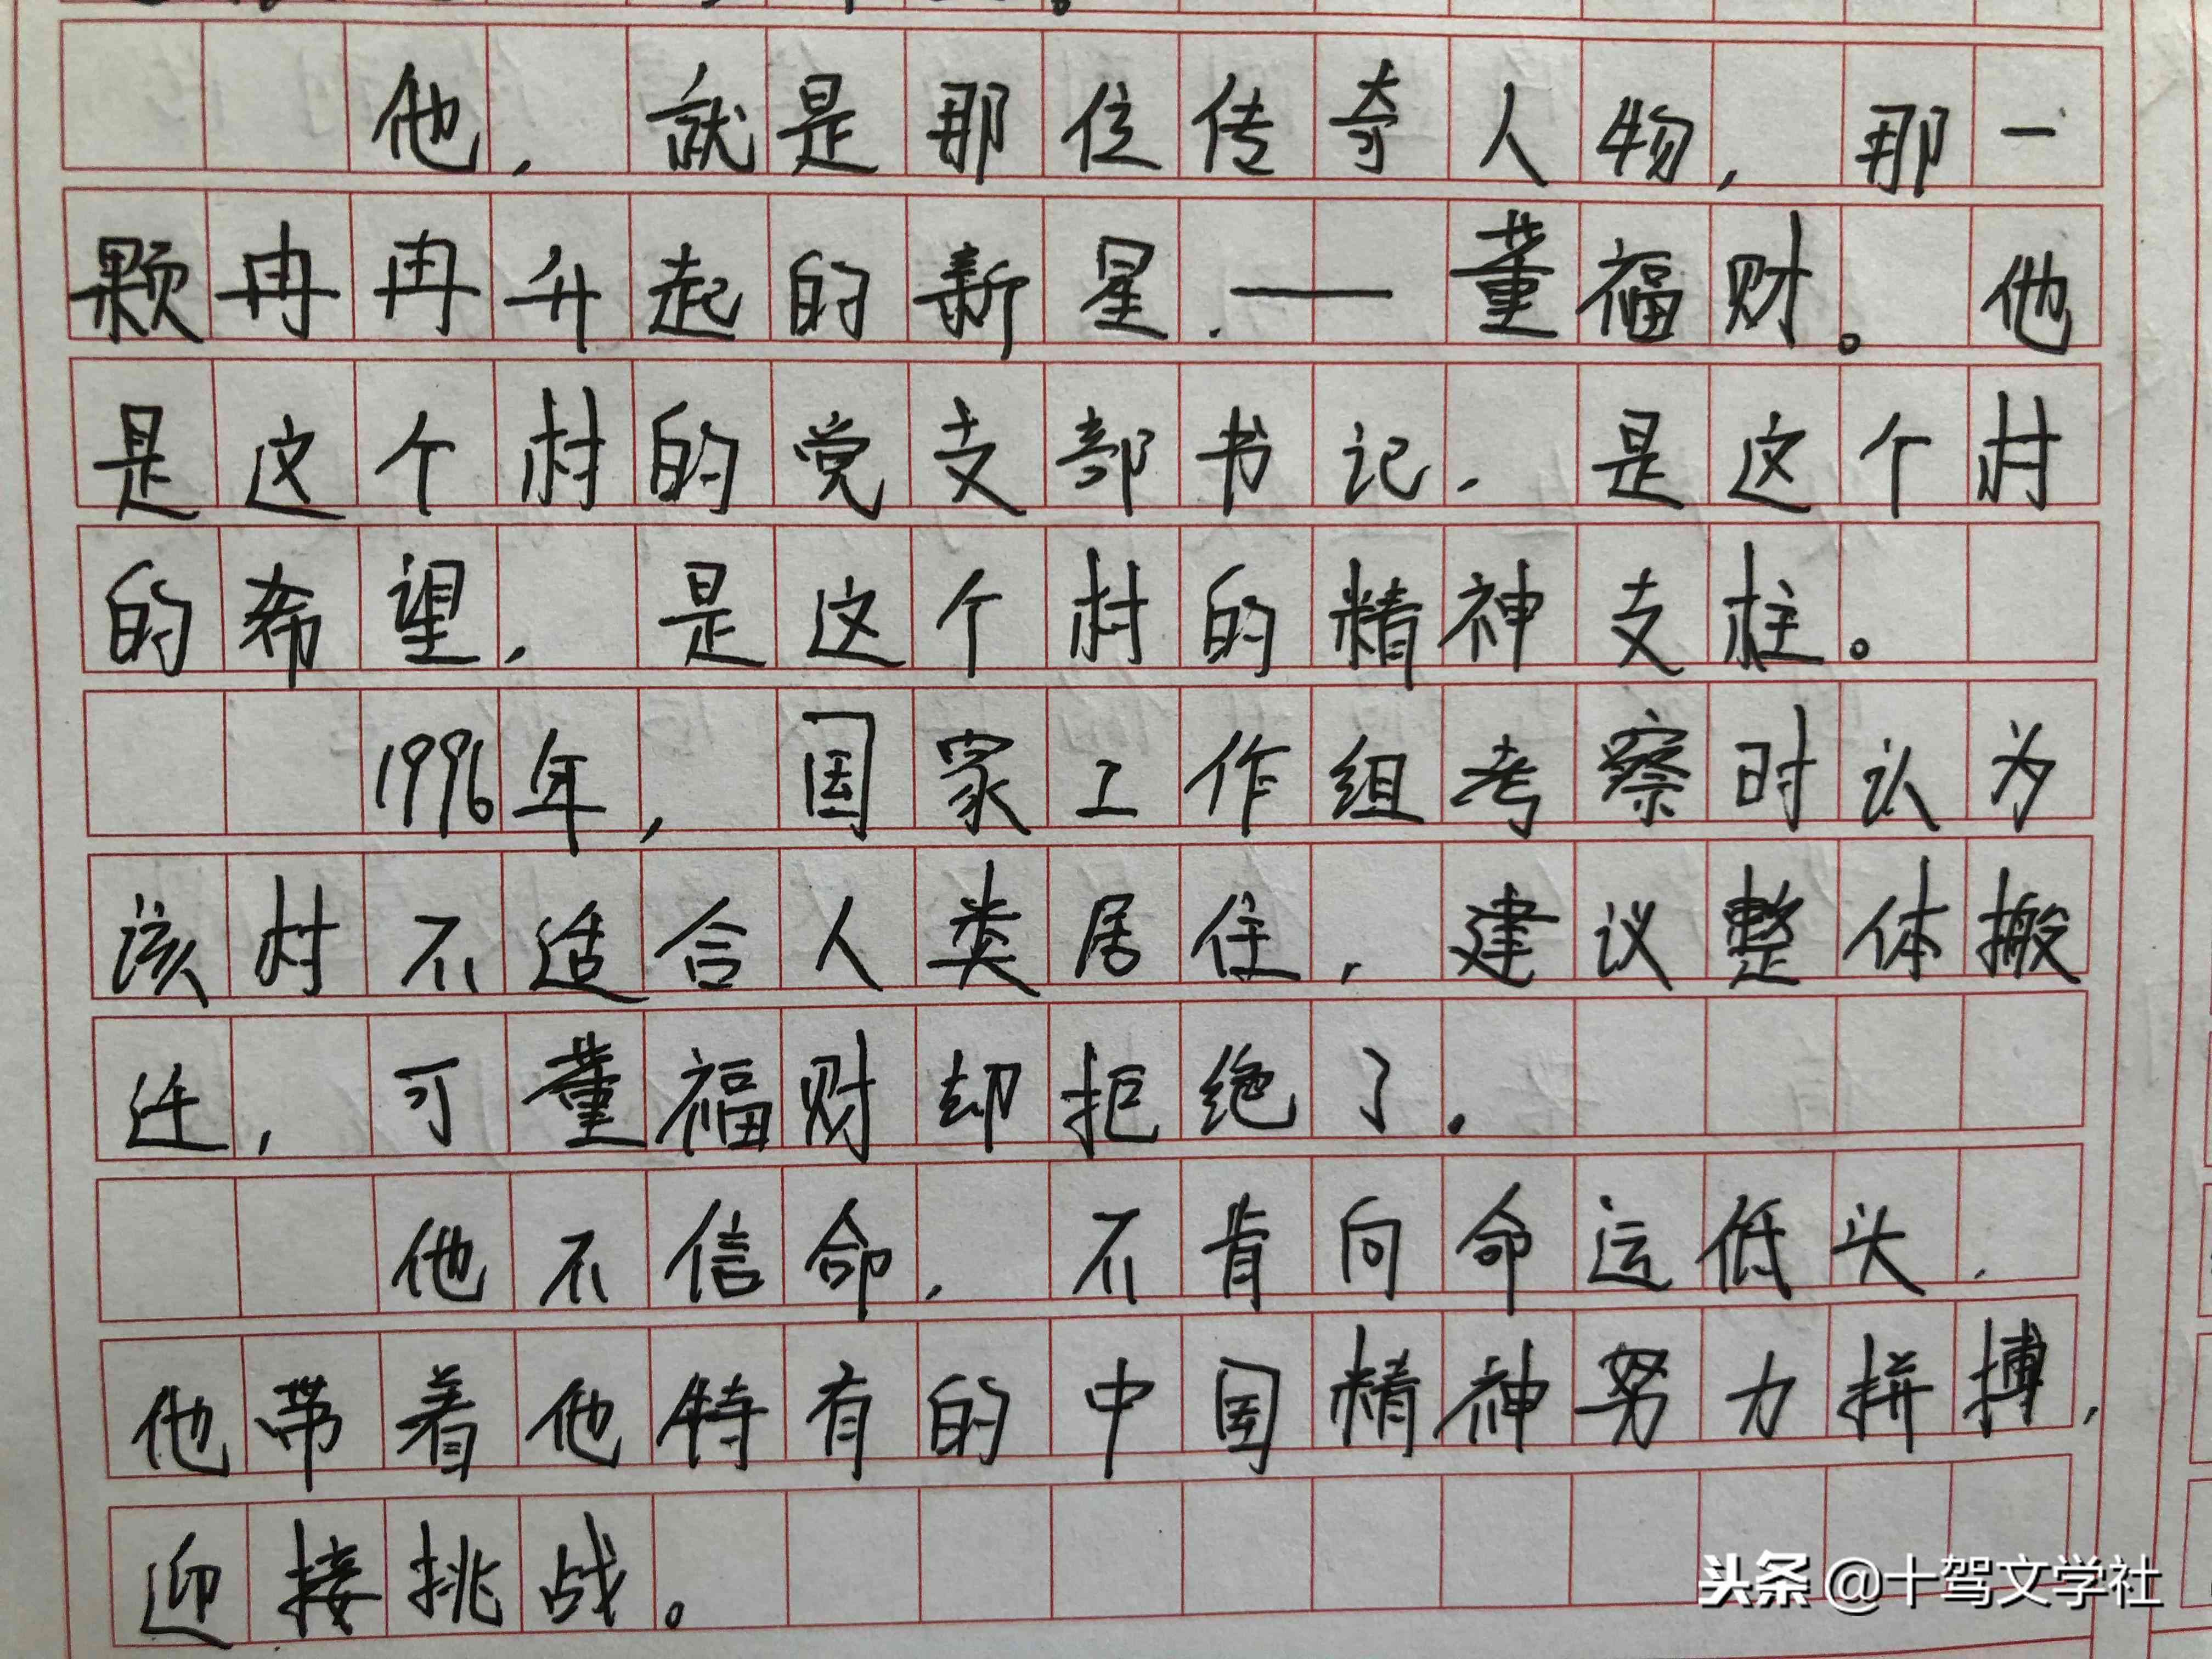 他，就是那位传奇人物，那一
颗冉冉升起的新星.——董福财。他
是这个村的党支部书记，是这个村
的希望，是这个村的精神支柱。
1996年，国家工作组考察时认为
该村不适合人类居住，建议整体搬
迁，可董福财却拒绝了.
他不信命，不肯向命运低头，
他带着他特有的中国精神努力拼搏，
迎接挑战。
头条 @十驾文学社